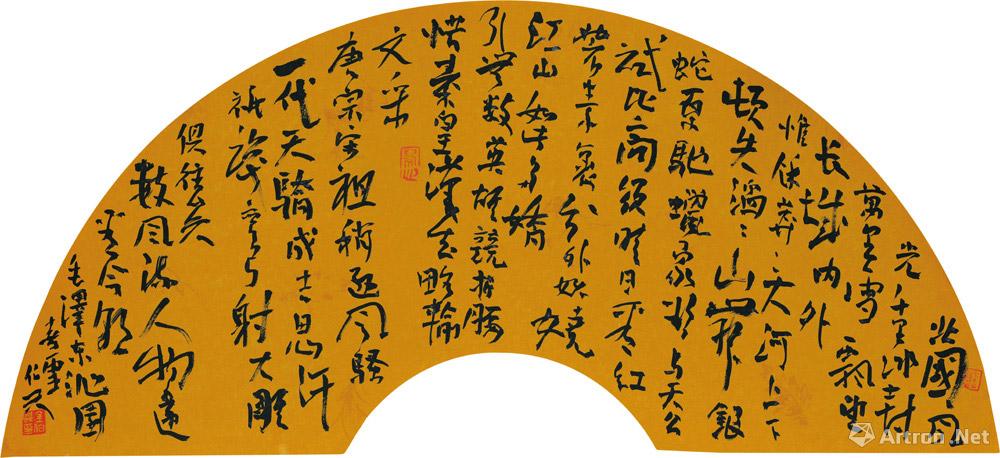 北國風
光千里冰封
萬里雪飄望
長城內外
惟餘莽〻大河上下
頓失滔〻山舞銀
蛇原馳蠟象欲與天公
試比高須晴日看紅
裝素裹分外妖嬈
江山如此多嬌
引無數英雄競折腰
惜秦皇漢武略輸
文采
唐宗宋祖稍遜風騷
一代天驕成吉思汗
祇識彎弓射大雕
俱往矣
數風流人物還
看今朝
毛澤東沁園
春雪
Artron.Net